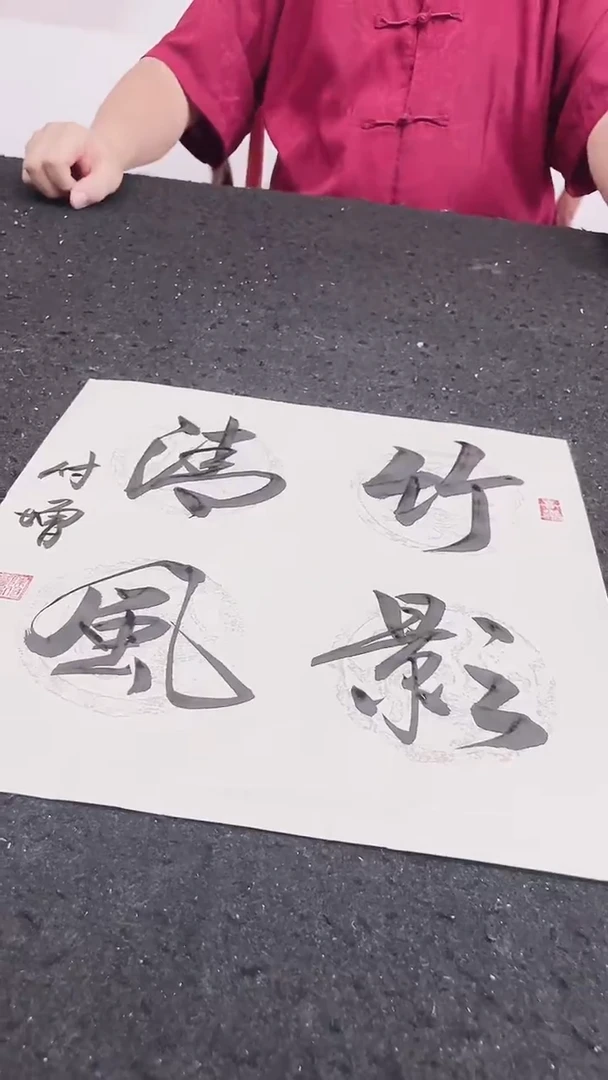 竹影
清風
付增